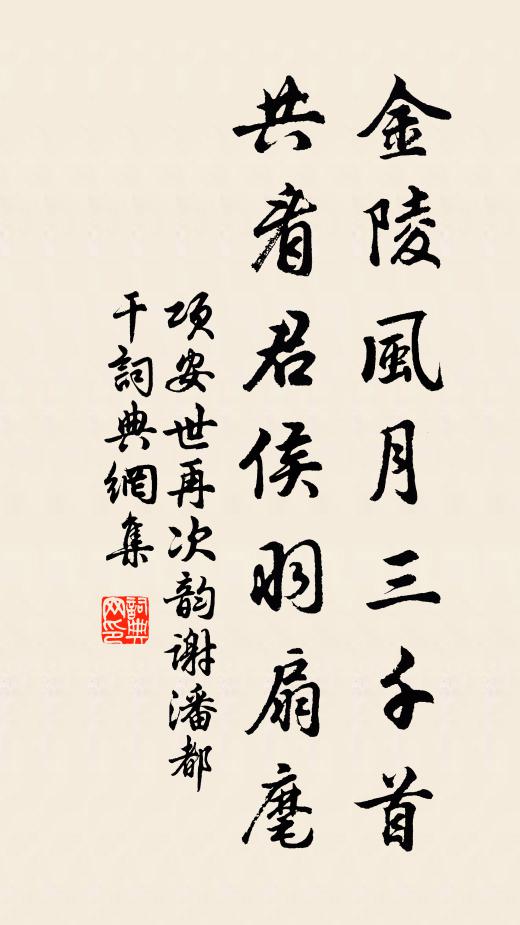 金陵風月三千首
共看君侯羽扇麾
項安世再次韵謝潘都
干詞典網集
詞典
网印